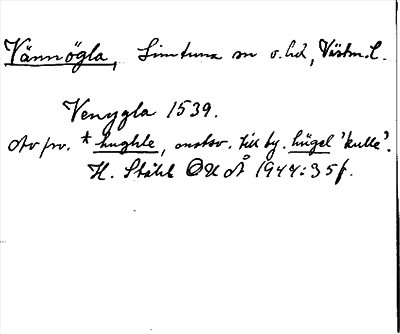 Vännögla, Simtuna sn o. hd, Västm. l.
Venygla 1539.
Av fsv. * hughle, motsv. till ty. hügel 'kulle'.
H. Ståhl OUÅ 1944: 35 f.